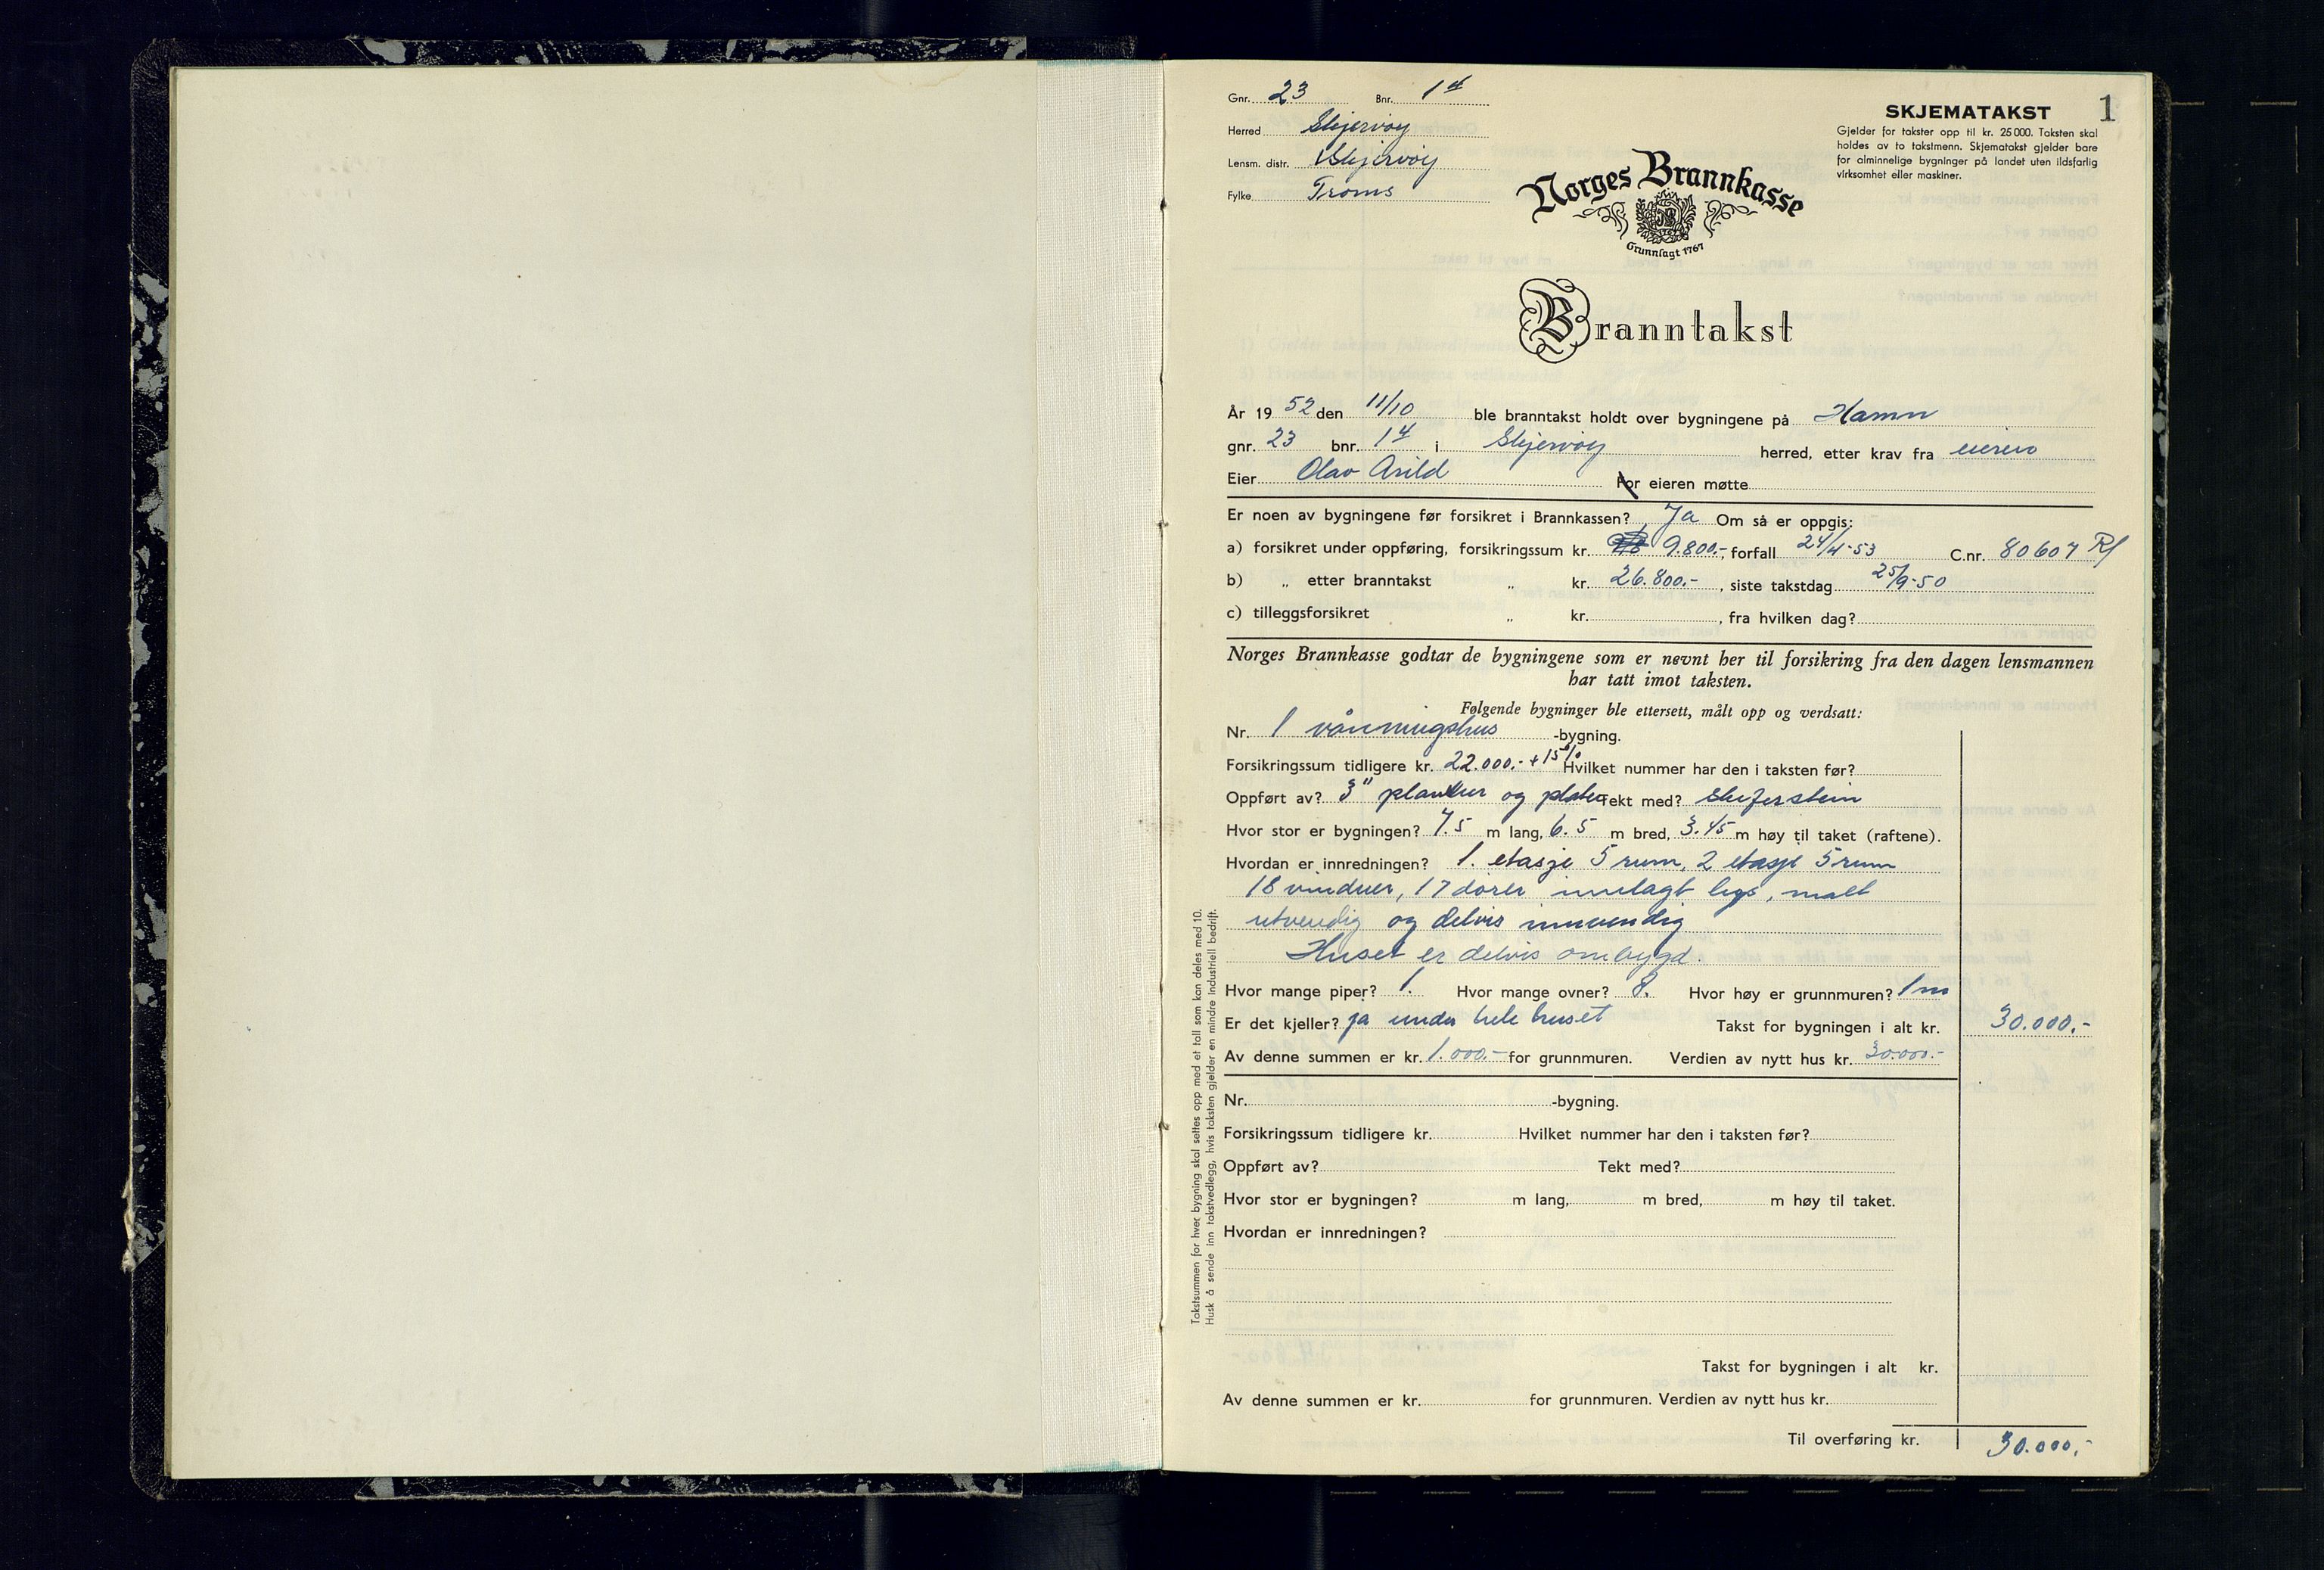 Gnr. 23 Bnr. 14
Herred Skjervøy
Lensm. distr. Skjervøy
Fylke Troms
SKJEMATAKST 1
Gjelder for takster opp til kr. 25 000. Taksten skal
holdes av to takstmenn. Skjematakst gjelder bare
for alminnelige bygninger på landet uten ildsfarlig
virksomhet eller maskiner.
Norges Brannkasse
Grunnlagt 1767
Branntakst
År 19 52 den 11/10 ble branntakst holdt over bygningene på Hamn
gnr. 23 bnr. 14 i Skjervøy herred, etter krav fra eieren
Eier Olav Arild For eieren møtte
Er noen av bygningene før forsikret i Brannkassen? Ja Om så er oppgis:
a) forsikret under oppføring, forsikringssum kr. 9.800.-, forfall 24/4-53 C.nr. 80607 Rf
b) „ etter branntakst „ kr. 26.800.-, siste takstdag 25/9-50
c) tilleggsforsikret „ kr. , fra hvilken dag?
Norges Brannkasse godtar de bygningene som er nevnt her til forsikring fra den dagen lensmannen
har tatt imot taksten.
Følgende bygninger ble ettersett, målt opp og verdsatt:
Nr. 1 våningshus -bygning.
Forsikringssum tidligere kr. 22.000.- + 15% Hvilket nummer har den i taksten før?
Oppført av? 3" planker og plater Tekt med? skiferstein
Hvor stor er bygningen? 7.5 m lang, 6.5 m bred, 3.45 m høy til taket (raftene).
Hvordan er innredningen? 1. etasje 5 rum, 2 etasje 5 rum
18 vinduer, 17 dører innlagt lys, malt
utvendig og delvis innvendig
Huset er delvis ombygd.
Hvor mange piper? 1. Hvor mange ovner? 8. Hvor høy er grunnmuren? 1 m
Er det kjeller? ja under hele huset Takst for bygningen i alt kr. 30.000.-
Av denne summen er kr. 1.000.- for grunnmuren. Verdien av nytt hus kr. 30.000.-
Nr. -bygning.
Forsikringssum tidligere kr. Hvilket nummer har den i taksten før?
Oppført av? Tekt med?
Hvor stor er bygningen? m lang, m bred, m høy til taket.
Hvordan er innredningen?
Takst for bygningen i alt kr.
Av denne summen er kr. for grunnmuren. Verdien av nytt hus kr.
Til overføring kr. 30.000.-
Takstsummen for hver bygning skal settes opp med et tall som kan deles med 10.
Husk å sende inn takstvedlegg, hvis taksten gjelder en mindre industriell bedrift.